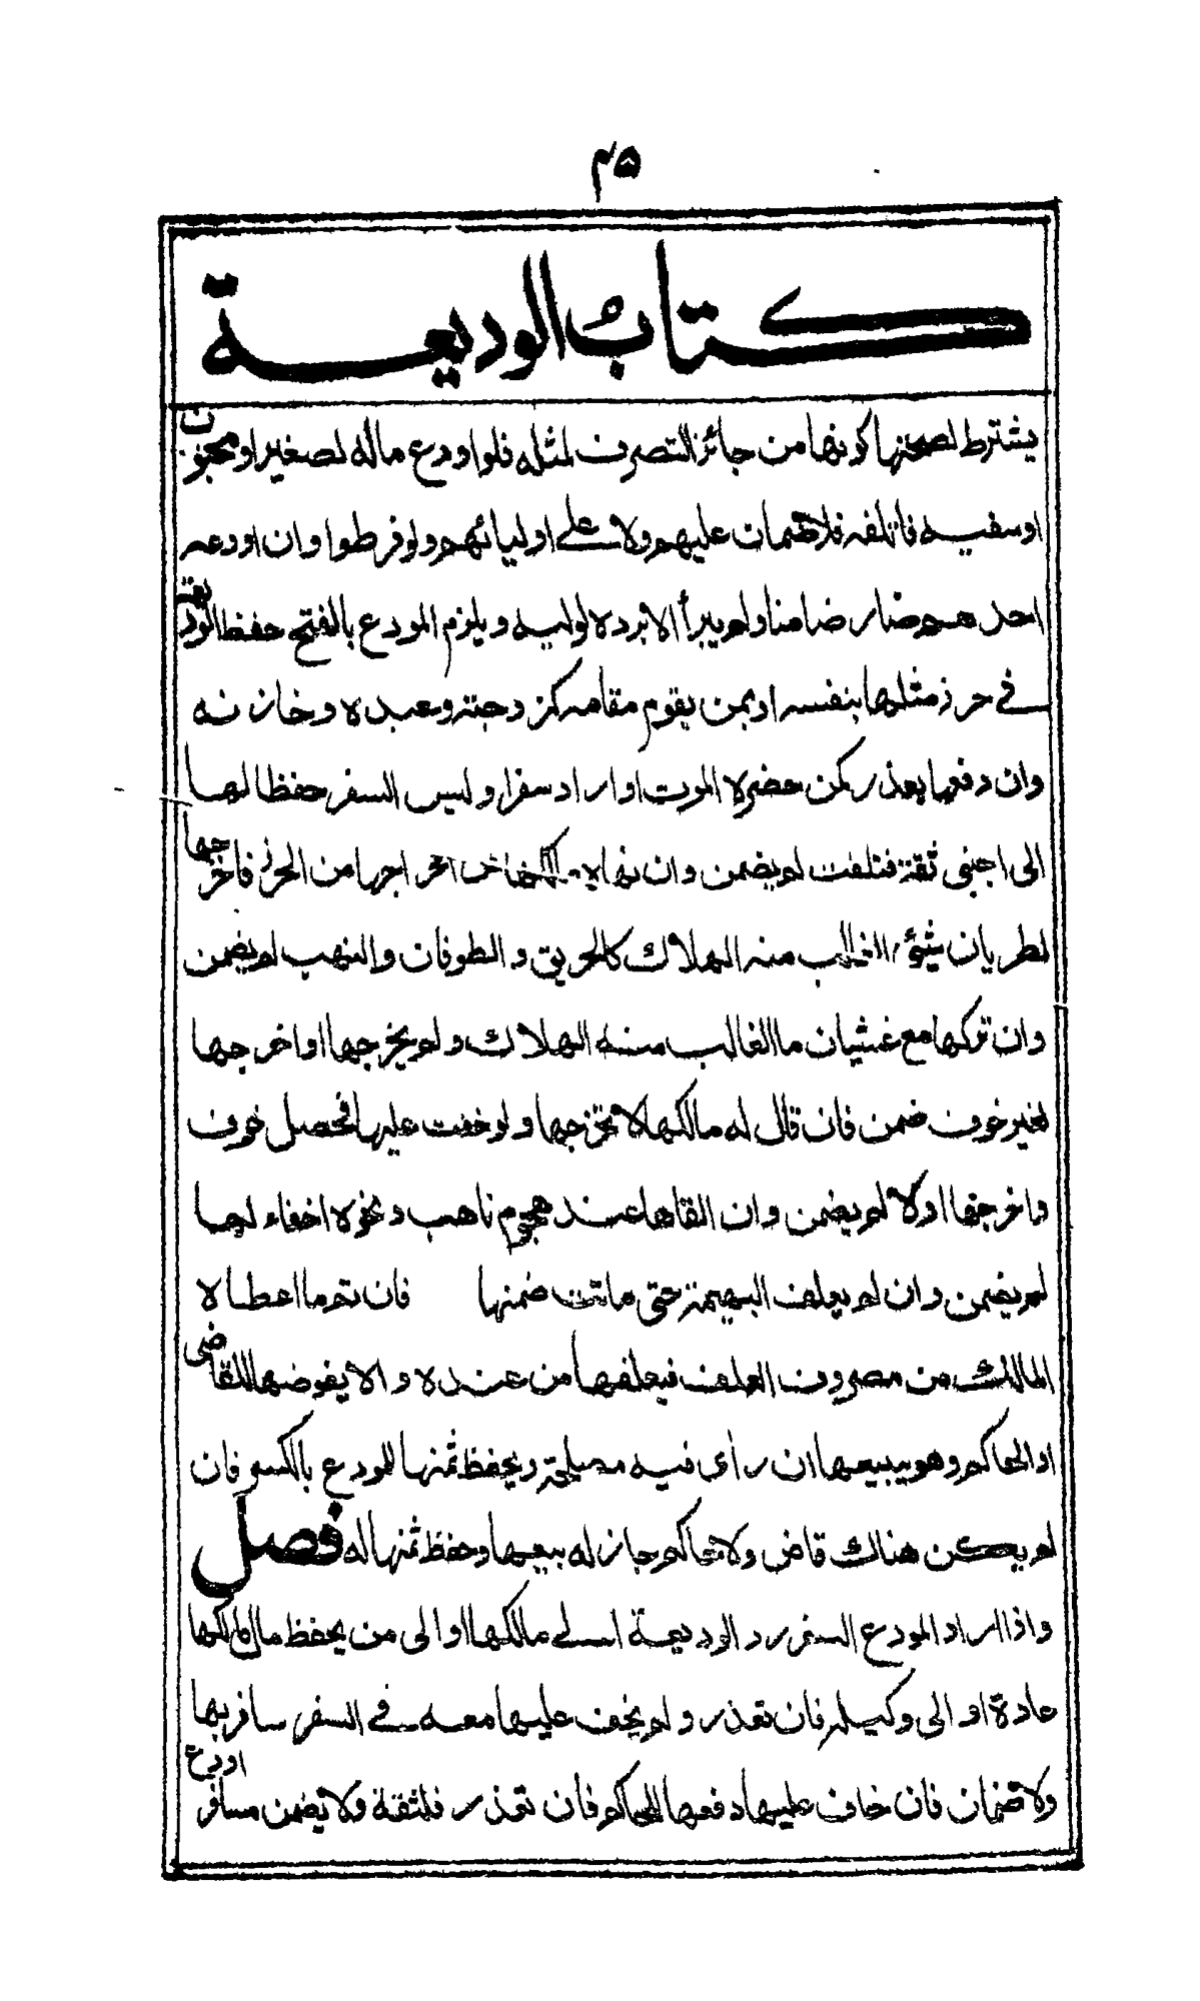 ٤٥
كتاب الوديعة
يشترط لصحتها كونها من جائز التصرف لمثله فلو اودع ماله لصغير او مجنون
او سفيه فاتلفه فلا ضمان عليهم ولا على اوليائهم ولو فرطوا وان اودعه
احدهم صار ضامنا ولم يبرأ الا برده لوليه ويلزم المودع بالفتح حفظ الوديعة
في حرز مثلها بنفسه او بمن يقوم مقامه كزوجته وعبده وخازنه
وان دفعها بعذر كمن حضره الموت او اراد سفرا وليس السفر حفظا لها
الى اجنبي ثقة فتلفت لم يضمن وان نهاه مالكها عن اخراجها من الحرز فاخرجها
لطريان شيئ الغالب منه الهلاك كالحريق والطوفان والنهب لم يضمن
وان تركها مع غشيان ما الغالب منه الهلاك ولم يخرجها او اخرجها
لغير خوف ضمن فان قال له مالكها لا تخرجها ولو خفت عليها فحصل خوف
واخرجها اولا لم يضمن وان القاها عند هجوم ناهب ونحوه اخفاء لها
لم يضمن وان لم يعلف البهيمة حتى ماتت ضمنها فان تم ما اعطاه
المالك من مصروف العلف فيعلفها من عنده والا يفوضها للقاضى
او الحاكم وهو يبيعها ان رأى فيه مصلحة ويحفظ ثمنها للمودع بالكسر فان
لم يكن هناك قاض ولا حاكم جاز له بيعها وحفظ ثمنها له فصل
واذا اراد المودع السفر رد الوديعة الى مالكها او الى من يحفظ مال مالكها
عادة او الى وكيله فان تعذر ولم يخف عليها معه في السفر سافر بها
ولا ضمان فان خاف عليها دفعها للحاكم فان تعذر فلثقة ولا يضمن مسافر اودع